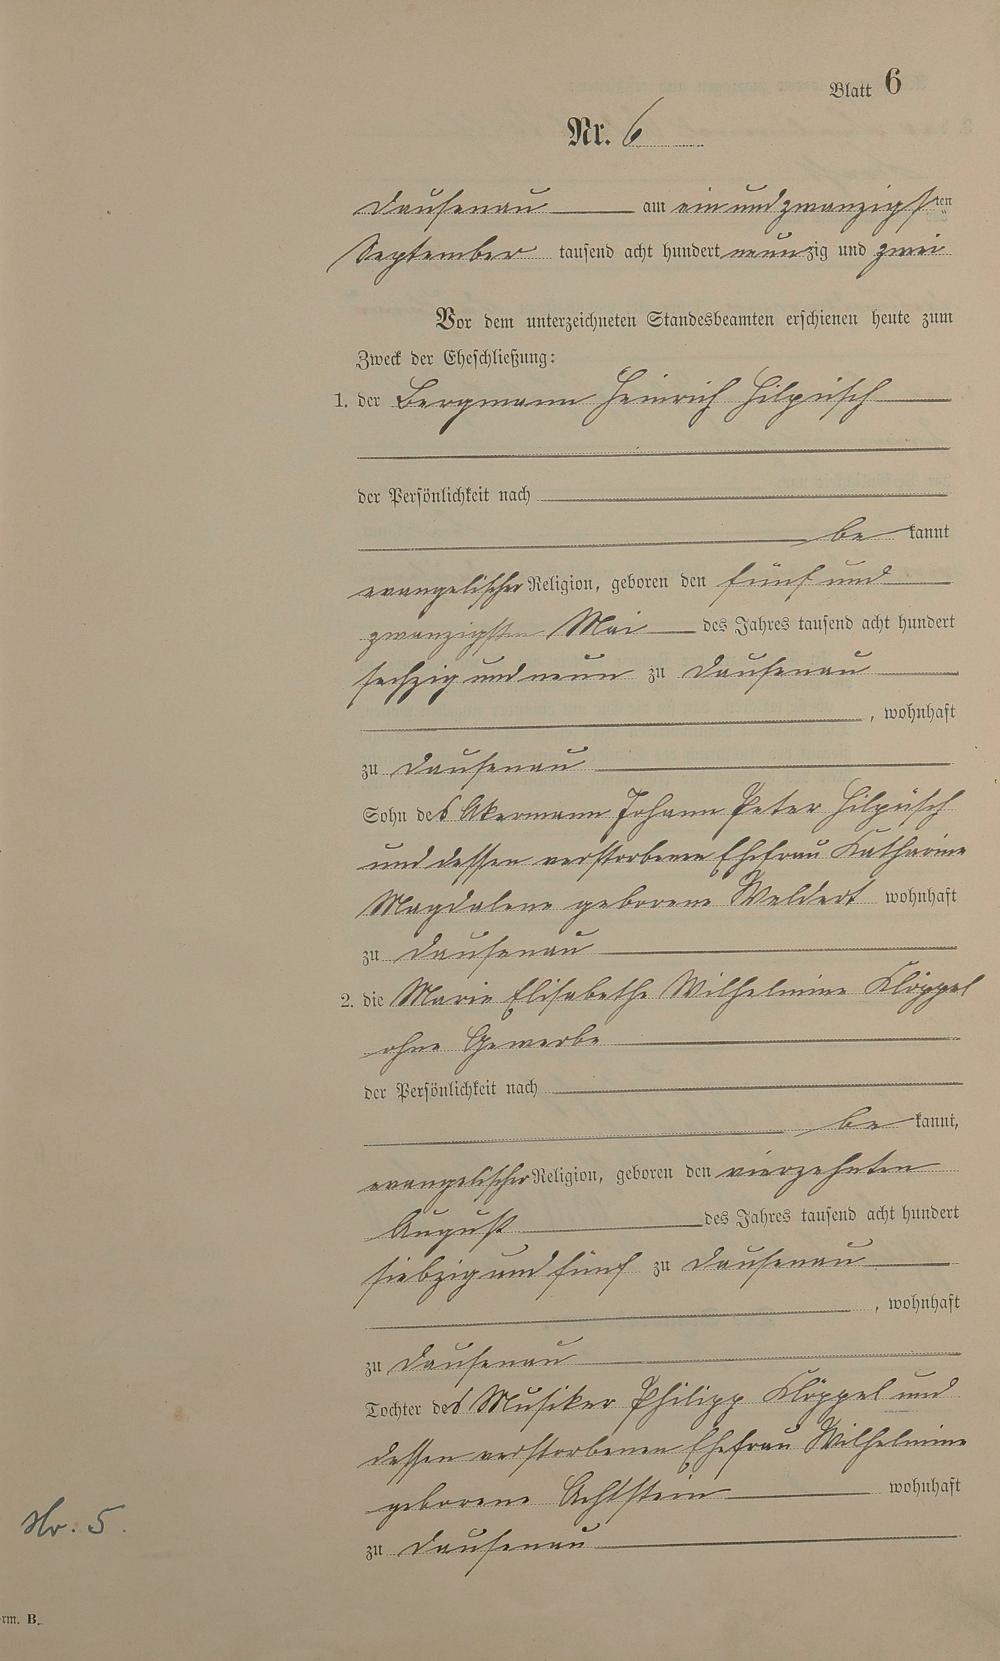 Blatt 6
Nr. 6
Dausenau am ein und zwanzigsten
September tausend acht hundert neunzig und zwei
Vor dem unterzeichneten Standesbeamten erschienen heute zum
Zweck der Eheschließung:
1. der Bergmann Heinrich Hilpüsch
der Persönlichkeit nach
be kannt
evangelischer Religion, geboren den fünf und
zwanzigsten Mai des Jahres tausend acht hundert
sechzig und neun zu Dausenau
, wohnhaft
zu Dausenau
Sohn des Akermann Johann Peter Hilpüsch
und dessen verstorbenen Ehefrau Katharine
Magdalene geborene Weldert wohnhaft
zu Dausenau
2. die Marie Elisabethe Wilhelmine Klöppel
ohne Gewerbe
der Persönlichkeit nach
be kannt,
evangelischer Religion, geboren den vierzehnten
August des Jahres tausend acht hundert
siebzig und fünf zu Dausenau
, wohnhaft
zu Dausenau
Tochter des Musiker Philipp Klöppel und
dessen verstorbenen Ehefrau Wilhelmine
geborene Achtstein wohnhaft
zu Dausenau
Nr. 5.
rm. B.